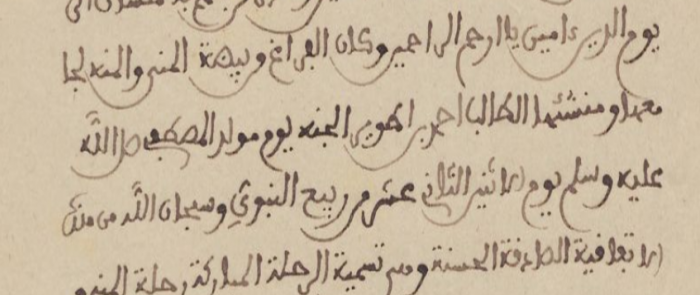 يوم الدين ءامين يا ارحم الراحمين وكان الفراغ المنى والمنه لجا
معها ومنشئها الطالب احمد بن اطوير الجنه يوم مولد المصطفى صلى الله
عليه وسلم يوم الاثنين الثاني عشر من ربيع النبوي وسبحان الله من
الاتفاقية الحسنة ومن تسمية الرحلة المباركة رحلة المنى و